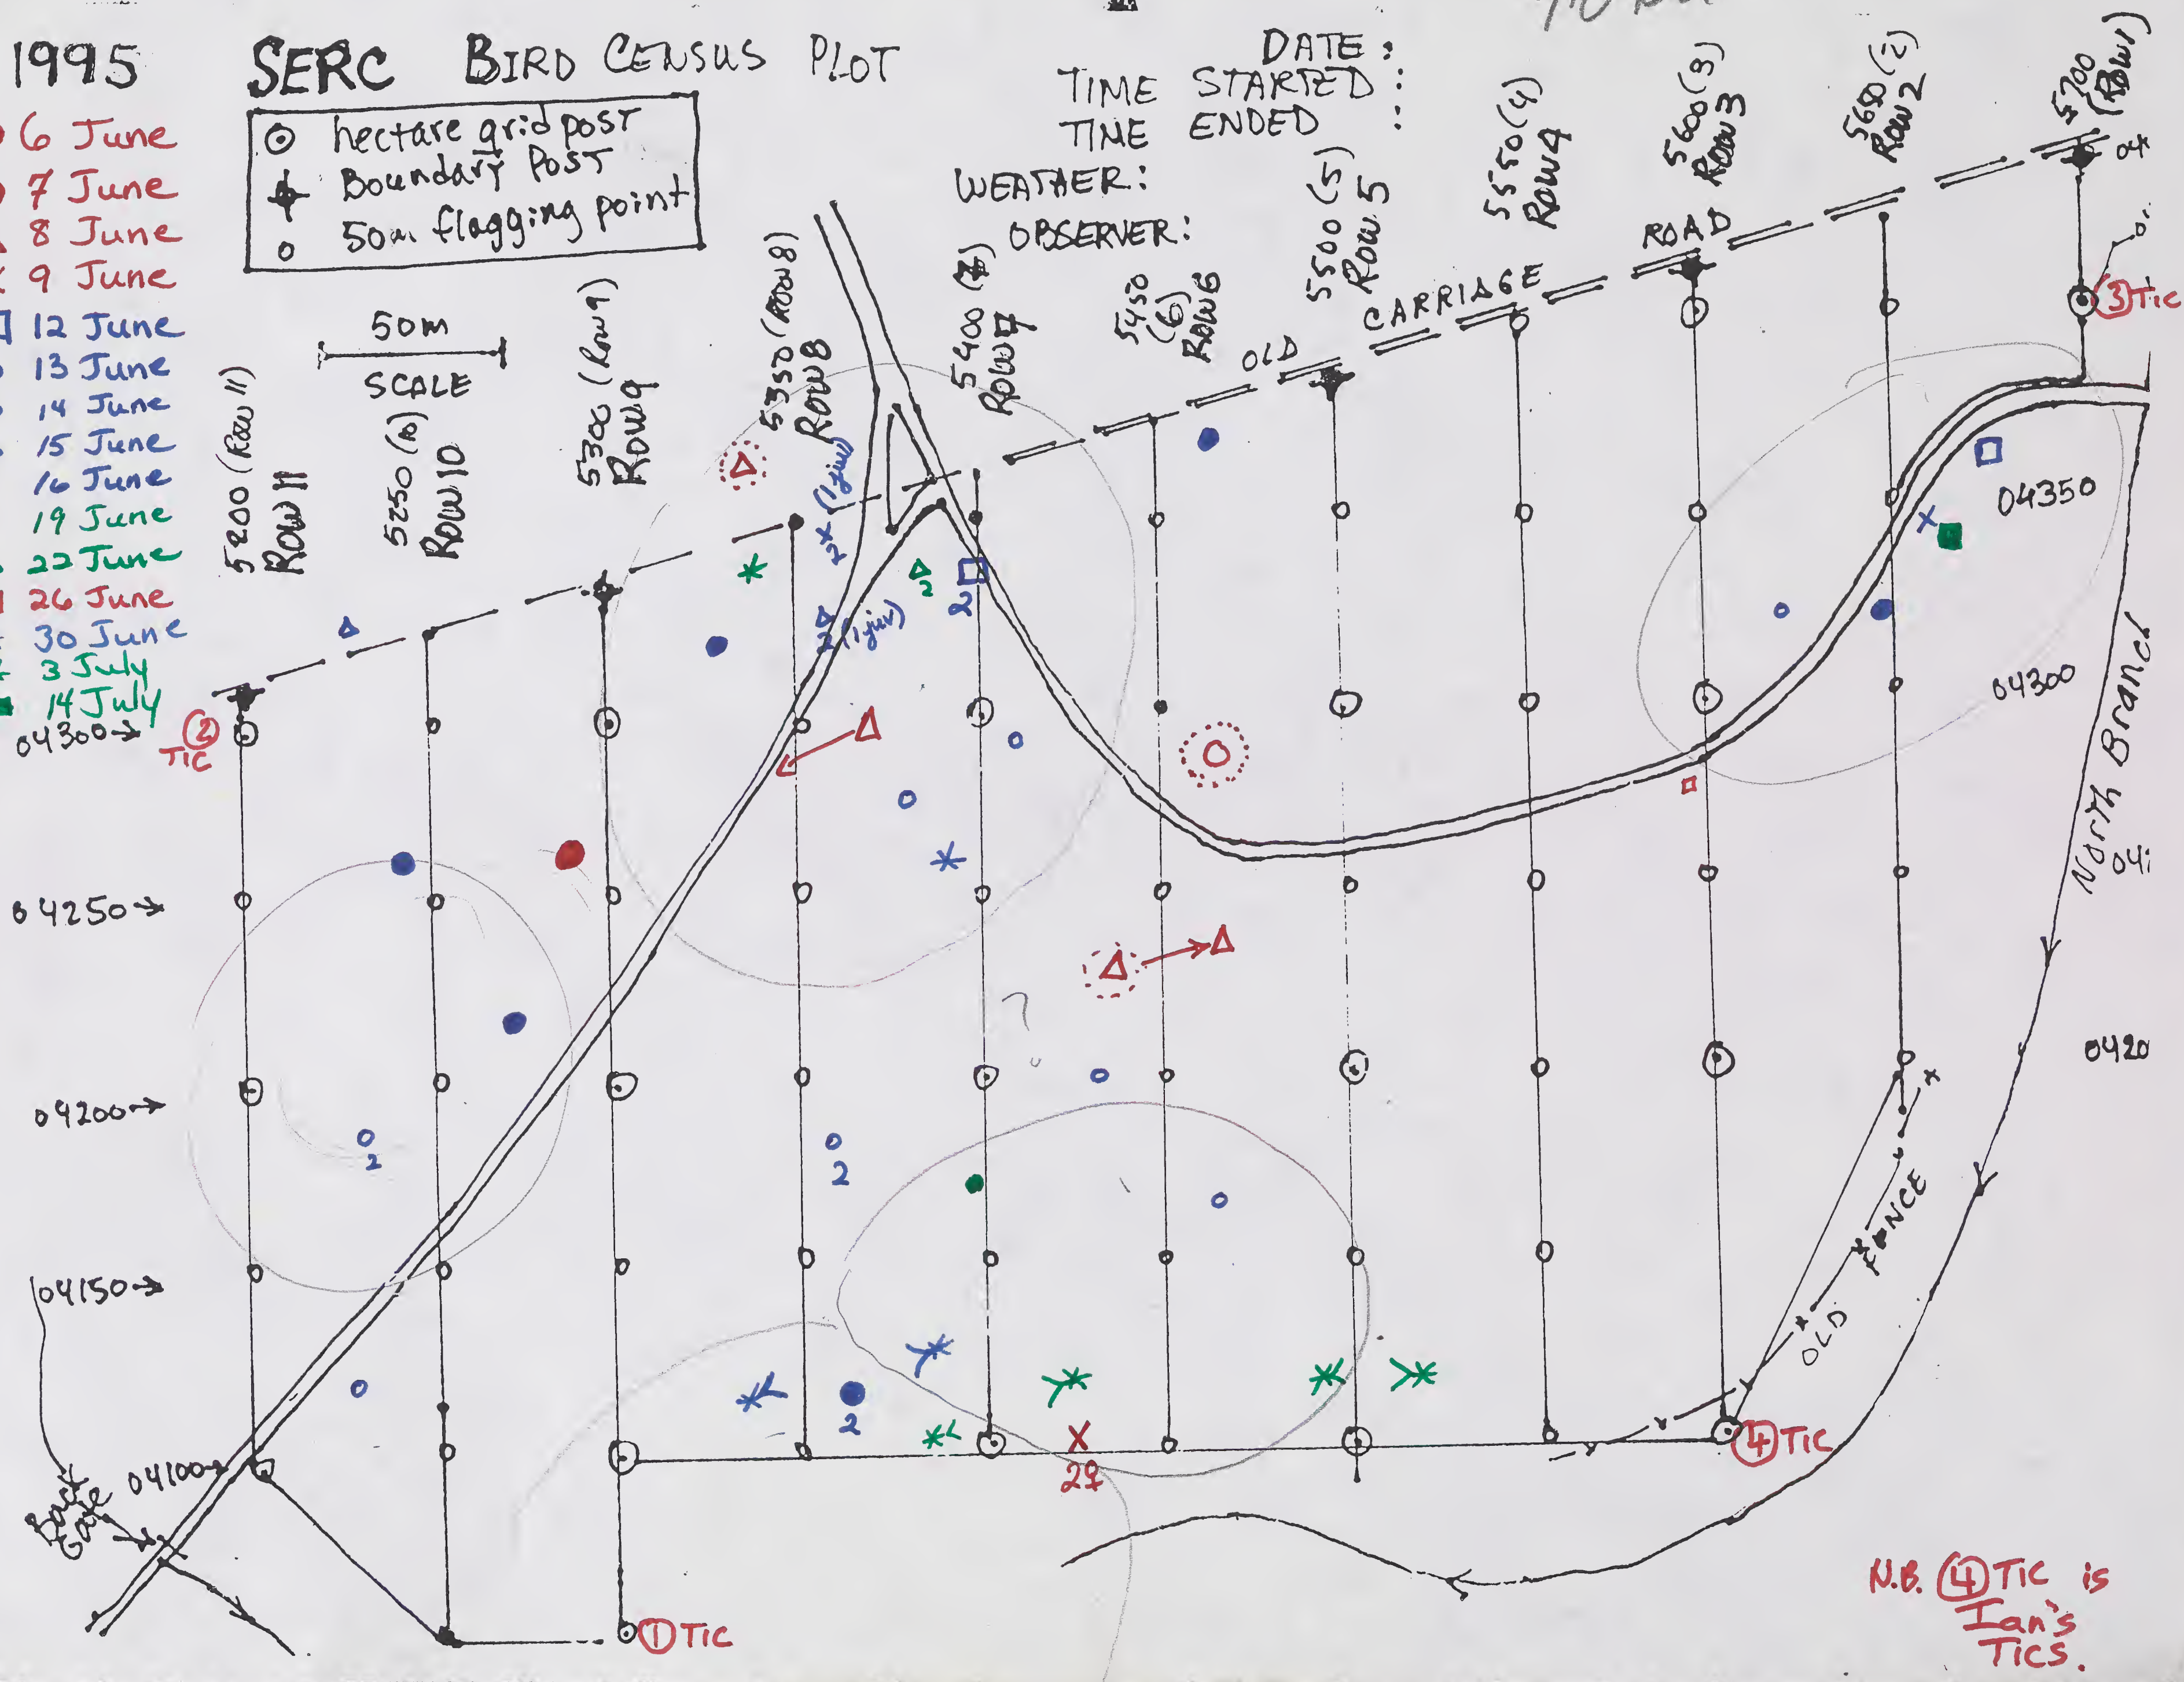 1995
SERC BIRD CENSUS PLOT
DATE:
TIME STARTED :
TIME ENDED :
WEATHER:
OBSERVER:
hectare grid post
Boundary Post
50m flagging point
6 June
7 June
8 June
9 June
12 June
13 June
14 June
15 June
16 June
19 June
22 June
26 June
30 June
3 July
14 July
50m
SCALE
5200 (Row 11)
Row 11
5250 (10)
Row 10
5300 (Row 9)
Row 9
5350 (Row 8)
Row 8
5400 (7)
Row 7
5450
(6)
Row 6
5500 (5)
Row 5
5550 (4)
Row 4
5600 (3)
Row 3
5650 (2)
Row 2
5700
(Row 1)
OLD CARRIAGE ROAD
04
3 Tic
2 (1 juv)
2 (1 juv)
2
2
04350
04300
North Branch
04300→
2
TIC
04250→
04200→
04150→
04100→
04
0420
2
2
2
2♀
OLD FENCE
4 TIC
1 TIC
Back
Gate
N.B. 4 TIC is
Ian's
TICS.